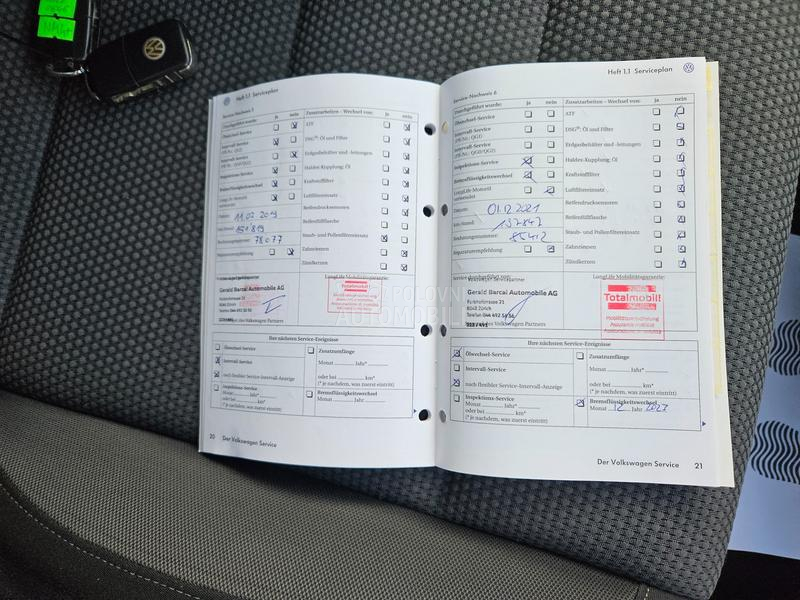 Heft 1.1 Serviceplan
Service-Nachweis 5
Durchgeführt wurde:
ja
nein
Zusatzarbeiten - Wechsel von:
ja
nein
Ölwechsel-Service
Intervall-Service
Intervall-Service
Inspektions-Service
Bremsflüssigkeitswechsel
LongLife-Motoröl
verwendet
ATF
DSG®: Öl und Filter
Erdgasbehälter und -leitungen
Haldex-Kupplung: Öl
Kraftstofffilter
Luftfiltereinsatz
Reifendrucksensoren
Reifenfüllflasche
Staub- und Pollenfiltereinsatz
Zahnriemen
Zündkerzen
Datum: 11.02.2019
Rechnungsnummer: 78077
Reparaturempfehlung
Gerald Barcal Automobile AG
LongLife Mobilitätsgarantie:
Totalmobil!
Ihre nächsten Service-Ereignisse
Ölwechsel-Service
Intervall-Service
nach flexibler Service-Intervall-Anzeige
Inspektions-Service
Monat Jahr*
oder bei km*
(* je nachdem, was zuerst eintritt)
Zusatzumfänge
Monat Jahr*
oder bei km*
(* je nachdem, was zuerst eintritt)
Bremsflüssigkeitswechsel
Monat Jahr
20 Der Volkswagen Service
Heft 1.1 Serviceplan
Service-Nachweis 6
Durchgeführt wurde:
ja
nein
Zusatzarbeiten - Wechsel von:
ja
nein
Ölwechsel-Service
Intervall-Service
Intervall-Service
Inspektions-Service
Bremsflüssigkeitswechsel
LongLife-Motoröl
verwendet
ATF
DSG®: Öl und Filter
Erdgasbehälter und -leitungen
Haldex-Kupplung: Öl
Kraftstofffilter
Luftfiltereinsatz
Reifendrucksensoren
Reifenfüllflasche
Staub- und Pollenfiltereinsatz
Zahnriemen
Zündkerzen
Datum: 01.12.2021
km-Stand: 197847
Rechnungsnummer: 85412
Reparaturempfehlung
Service durchgeführt von:
Gerald Barcal Automobile AG
8048 Zürich
des Volkswagen Partners
LongLife Mobilitätsgarantie:
Totalmobil!
Ihre nächsten Service-Ereignisse
Ölwechsel-Service
Intervall-Service
nach flexibler Service-Intervall-Anzeige
Inspektions-Service
Monat Jahr*
oder bei km*
(* je nachdem, was zuerst eintritt)
Zusatzumfänge
Monat Jahr*
oder bei km*
(* je nachdem, was zuerst eintritt)
Bremsflüssigkeitswechsel
Monat 12 Jahr 2027
Der Volkswagen Service 21